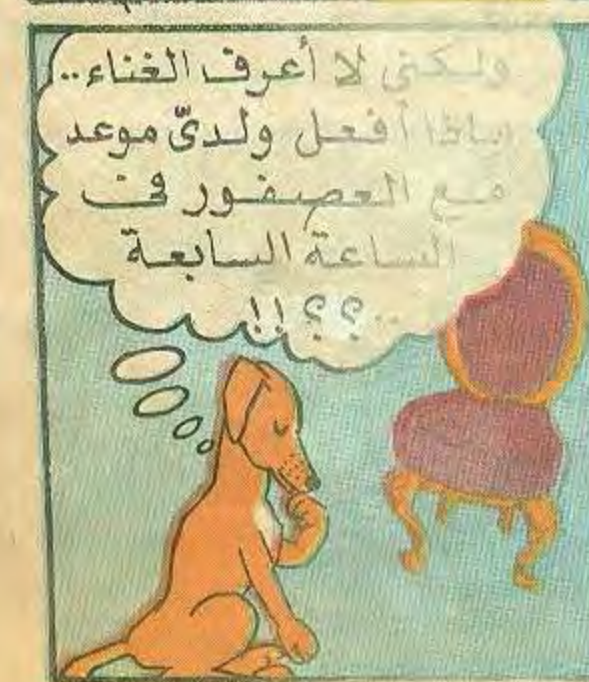 ولكنى لا أعرف الغناء..
ماذا أفعل ولدىّ موعد
مع العصفور فى
الساعة السابعة
..؟؟!!